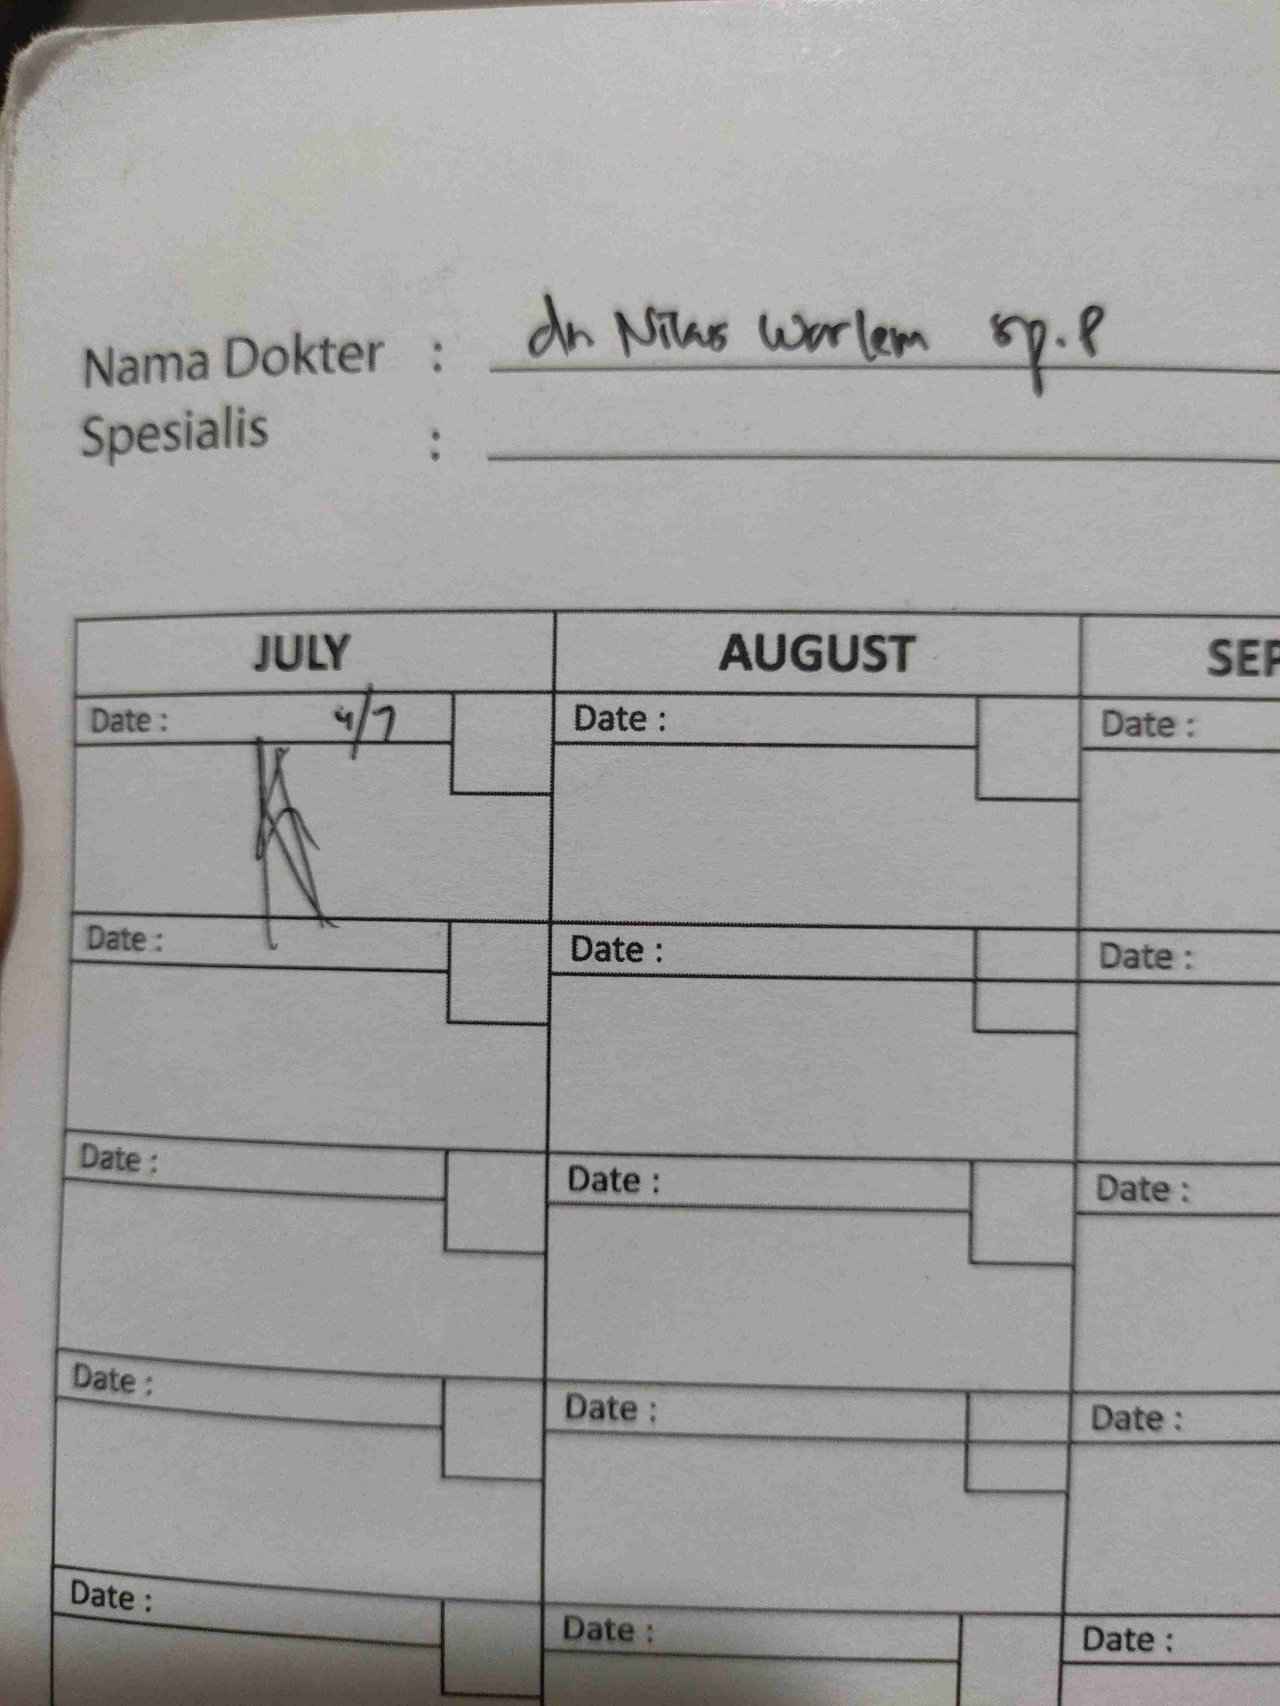 Nama Dokter : dr Nilas Warlem sp.P
Spesialis :
JULY AUGUST SEP
Date : 4/7 Date : Date :
Date : Date : Date :
Date : Date : Date :
Date : Date : Date :
Date : Date : Date :